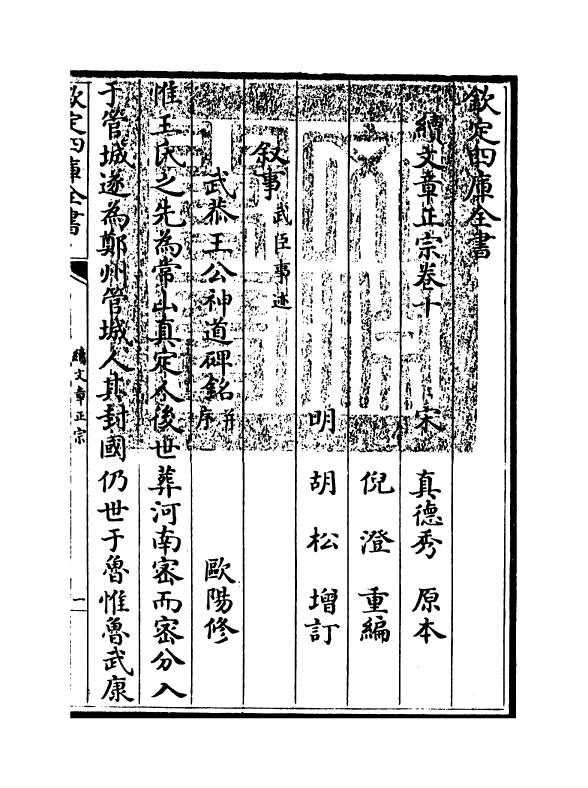 欽定四庫全書
續文章正宗卷十
宋 真德秀 原本
倪澄 重編
明 胡松 增訂
叙事 武臣事述
武恭王公神道碑銘 并序 歐陽修
惟王氏之先為常山真定人後世葬河南密而密分入
于管城遂為鄭州管城人其封國仍世于魯惟魯武康
欽定四庫全書
續文章正宗
一